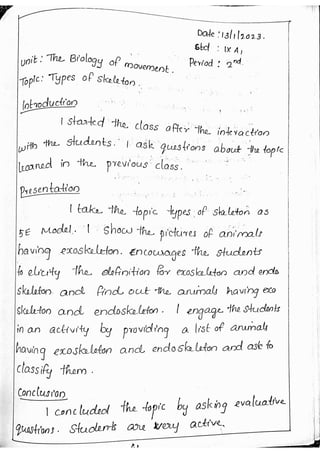 Date : 13/1/2023.
Std : IX A,
Unit : The Biology of movement. Period : 2nd.
Topic : Types of Skeleton.
Introduction
I started the class after the interaction
with the students. I ask questions about the topic
learned in the previous class.
Presentation
I take the topic types of skeleton as
5E Model. I Show the pictures of animals
having exoskeleton. Encourages the students
to elicity the definition for exoskeleton and endo
skeleton and find out the animals having exo
skeleton and endoskeleton. I engage the students
in an activity by providing a list of animals
having exoskeleton and endoskeleton and ask to
classify them.
Conclusion
I concluded the topic by asking evaluative
questions. Students are very active.